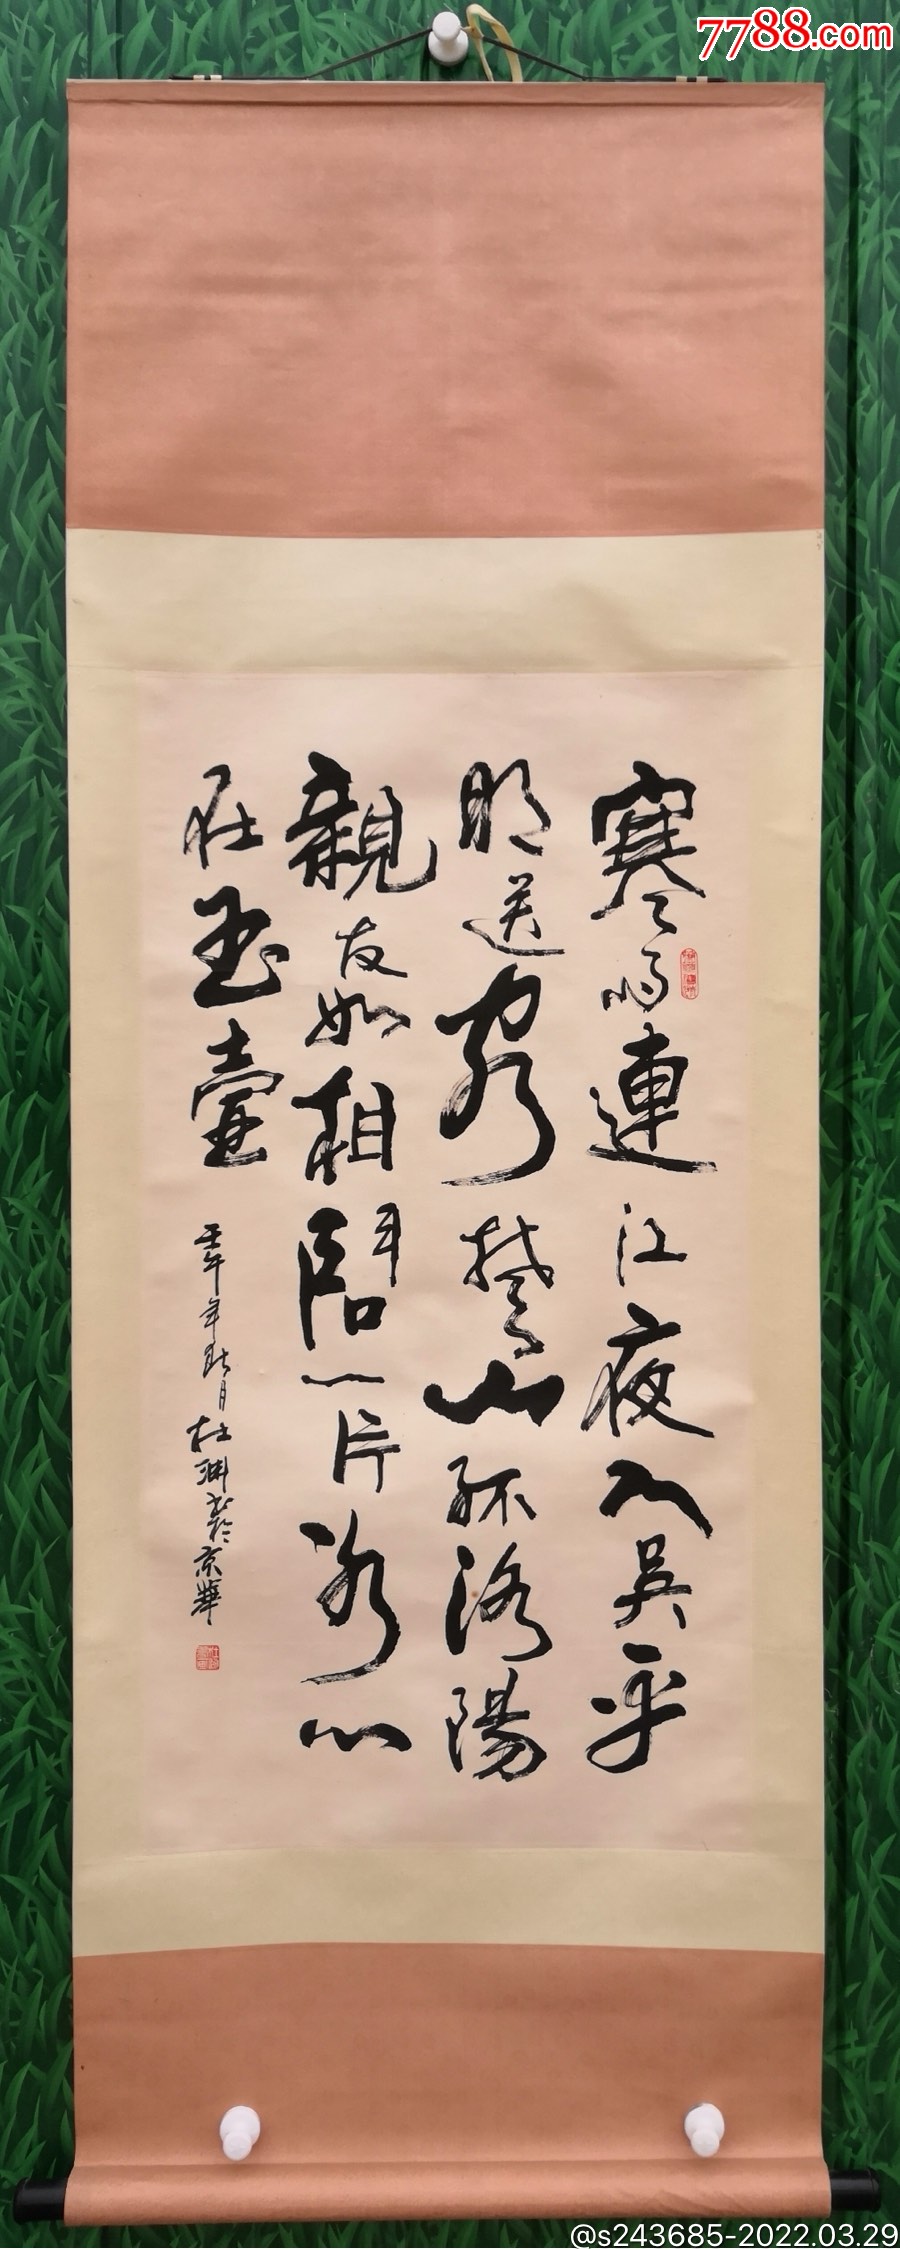 7788.com
寒雨連江夜入吳平
明送客楚山孤洛陽
親友如相問一片冰心
在玉壺
壬午年秋月杜渊书於京華
@s243685-2022.03.29